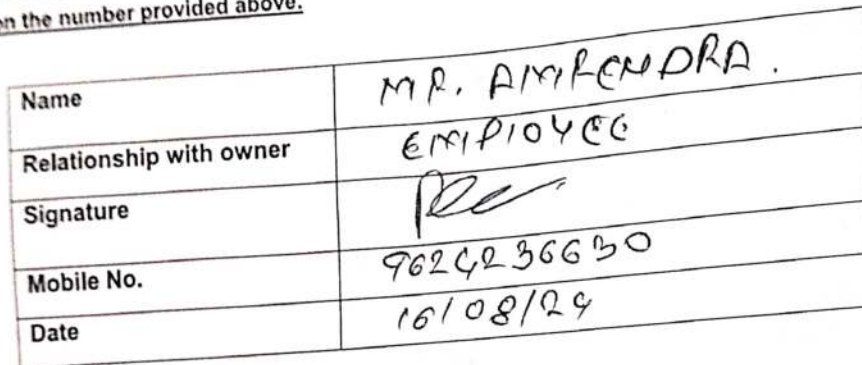 on the number provided above.
Name MR. AMRENDRA.
Relationship with owner EMPLOYEE
Signature
Mobile No. 9624236630
Date 16/08/24